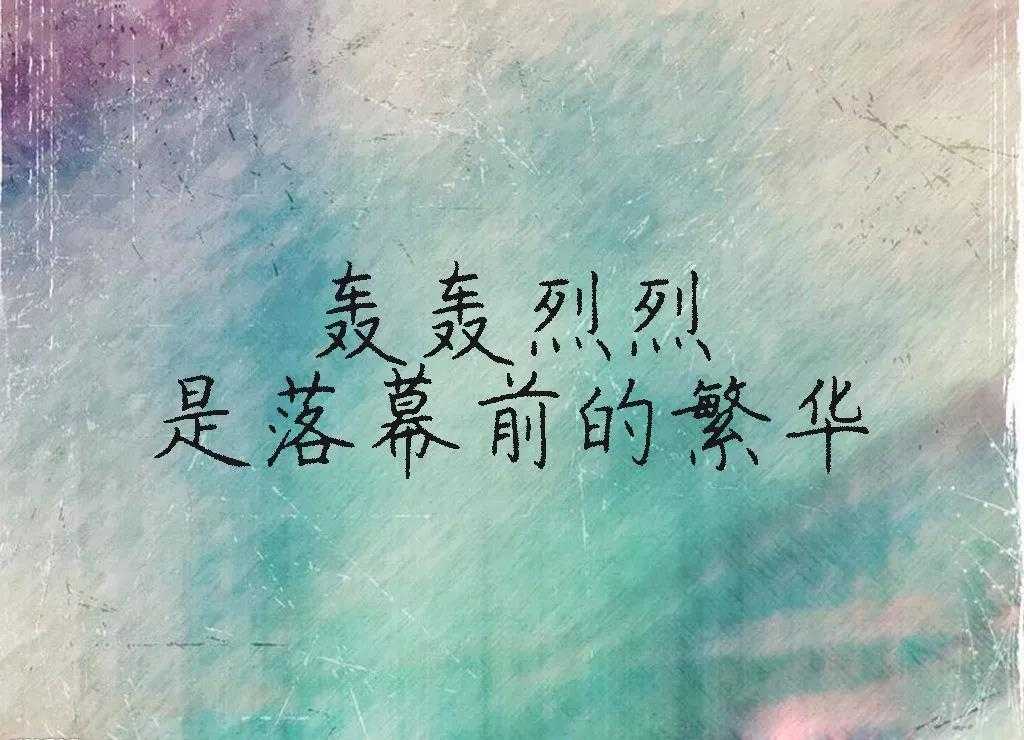 轰轰烈烈
是落幕前的繁华